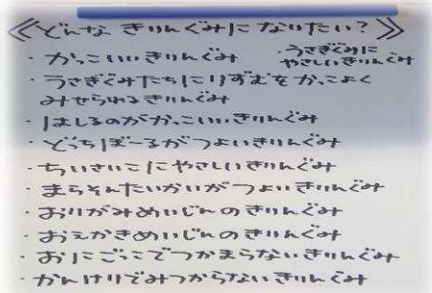 《どんな きりんぐみに なりたい？》
・かっこいいきりんぐみ
・うさぎぐみに
やさしいきりんぐみ
・うさぎぐみたちにりずむをかっこよく
みせられるきりんぐみ
・はしるのがかっこいいきりんぐみ
・どっちぼーるがつよいきりんぐみ
・ちいさいこにやさしいきりんぐみ
・まらそんたいかいがつよいきりんぐみ
・おりがみめいじんのきりんぐみ
・おえかきめいじんのきりんぐみ
・おにごっこでつかまらないきりんぐみ
・かんけりでみつからないきりんぐみ